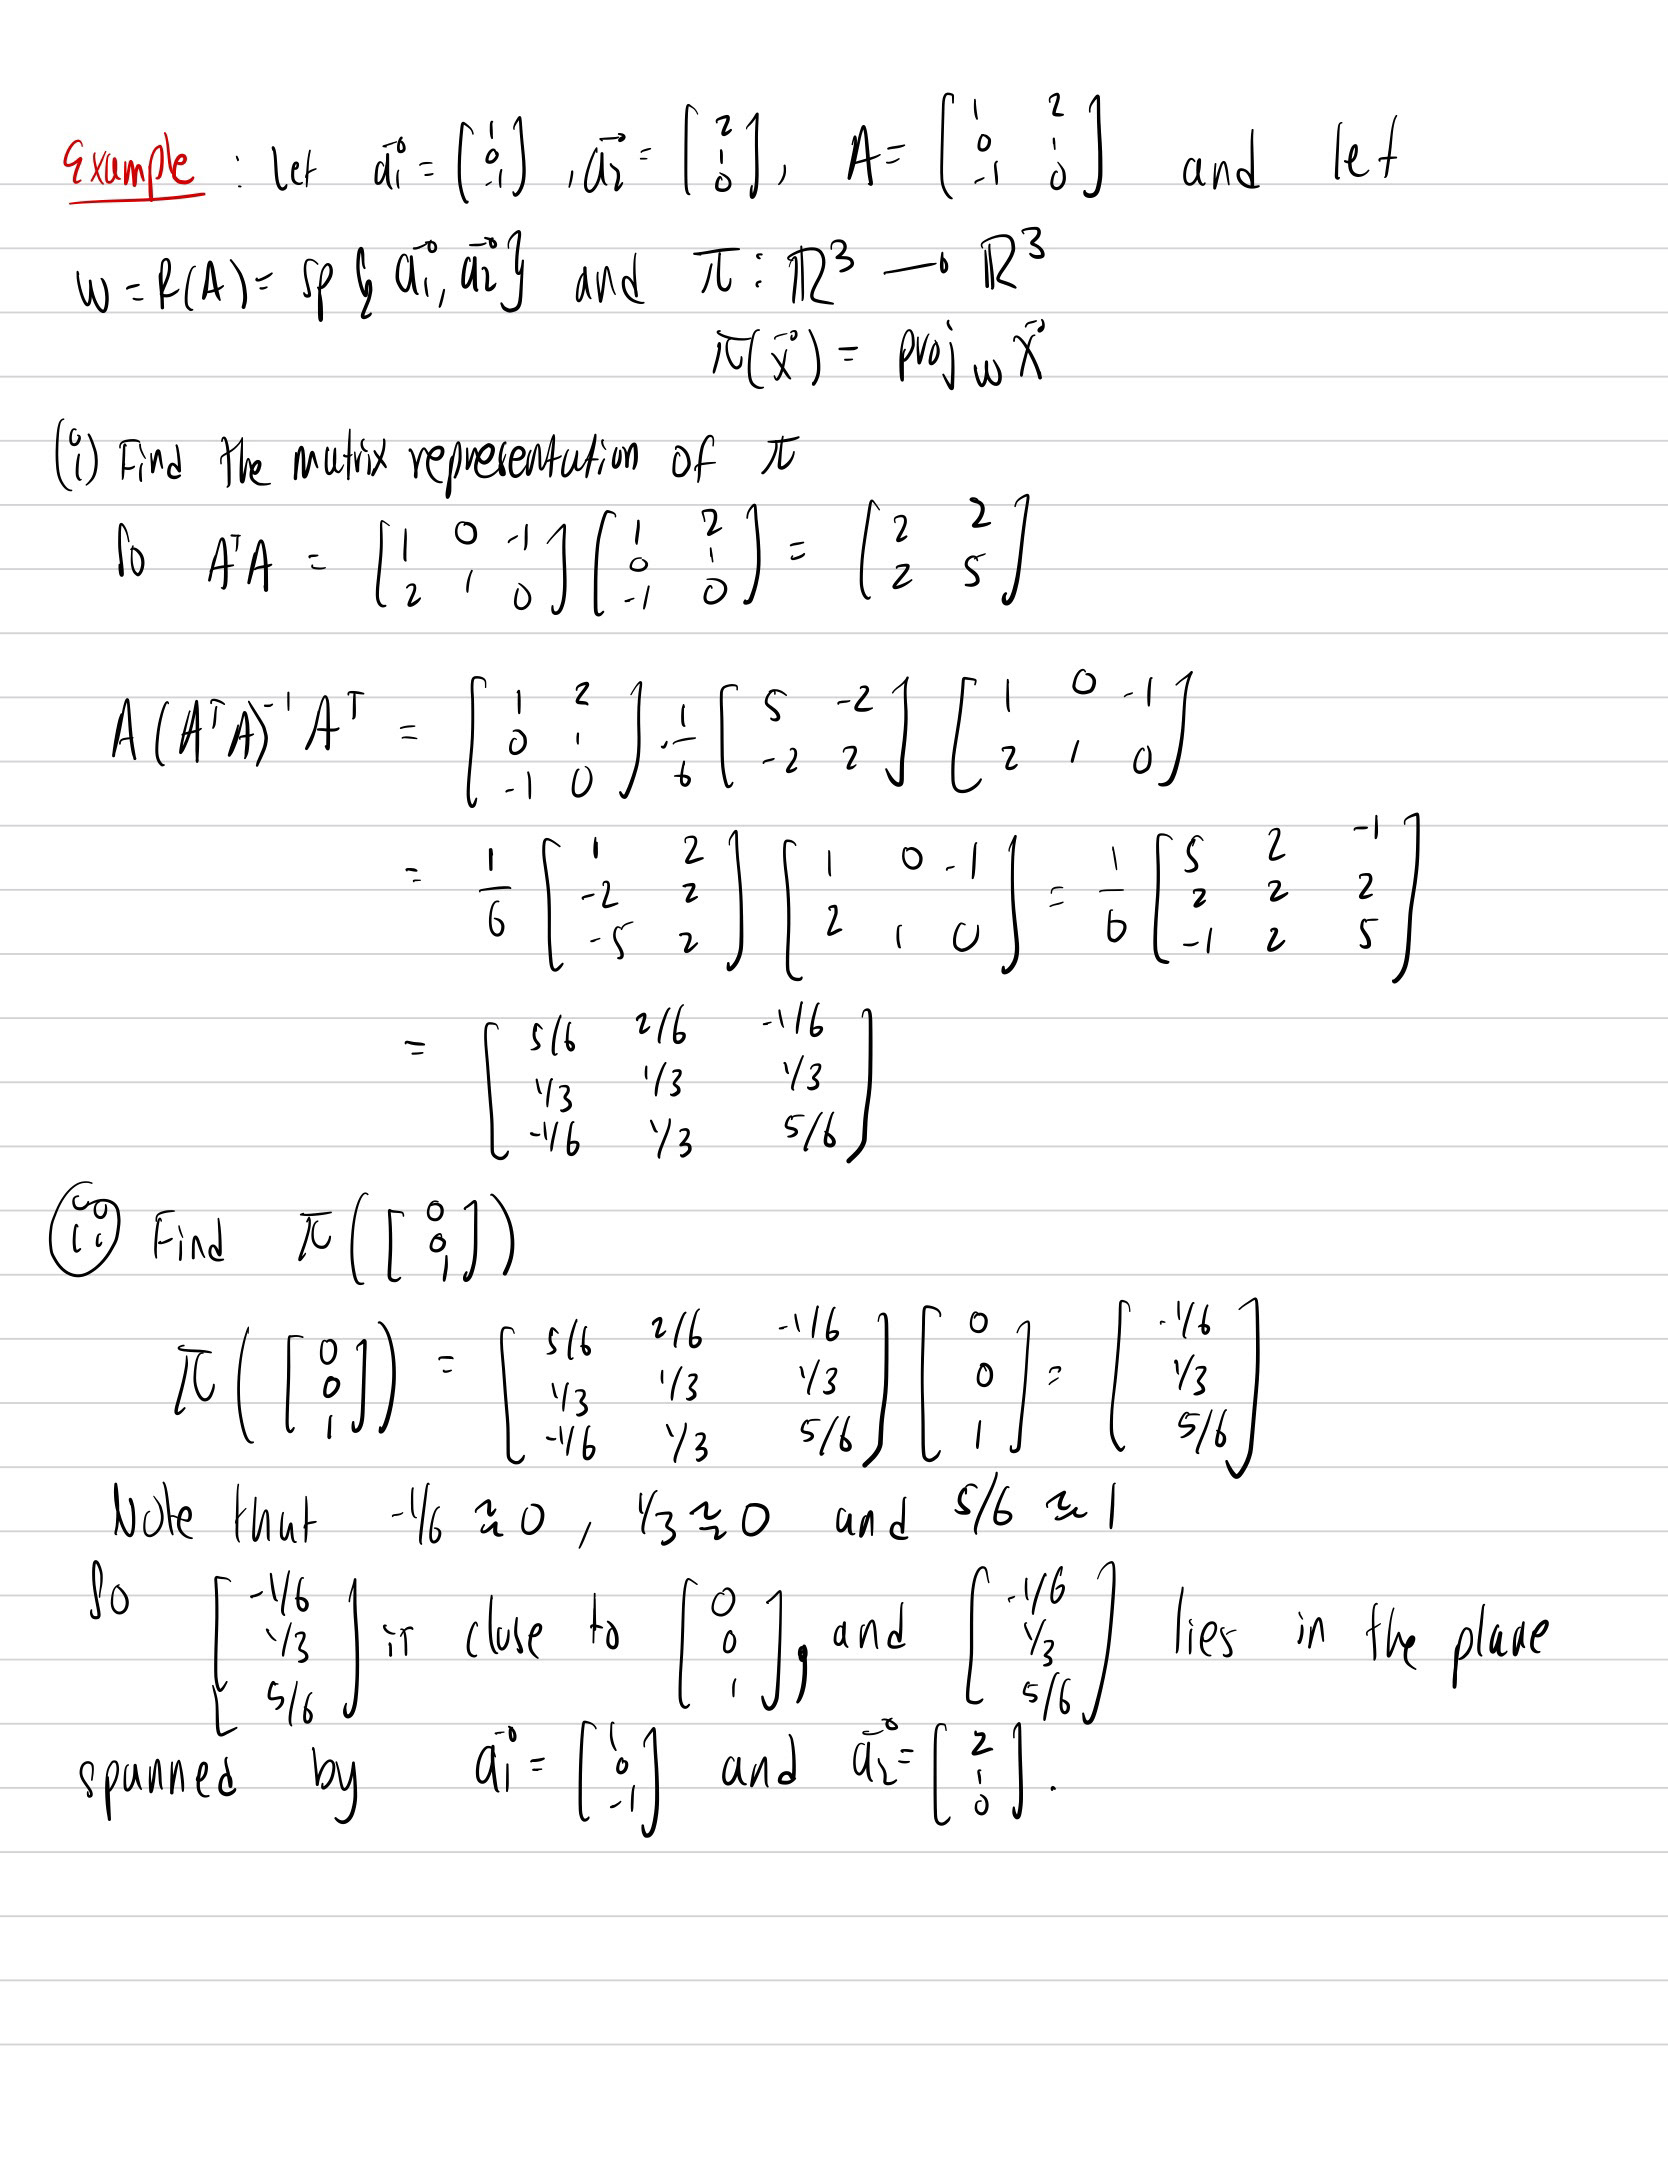 Example : Let a⃗₁ = [1; 0; -1], a⃗₂ = [2; 1; 0], A = [1 2; 0 1; -1 0] and let
W = R(A) = sp{a⃗₁, a⃗₂} and π : ℝ³ → ℝ³
π(x⃗) = proj_W x⃗
(i) Find the matrix representation of π
So AᵀA = [1 0 -1; 2 1 0] [1 2; 0 1; -1 0] = [2 2; 2 5]
A(AᵀA)⁻¹Aᵀ = [1 2; 0 1; -1 0] · 1/6 [5 -2; -2 2] [1 0 -1; 2 1 0]
= 1/6 [1 2; -2 2; -5 2] [1 0 -1; 2 1 0] = 1/6 [5 2 -1; 2 2 2; -1 2 5]
= [5/6 2/6 -1/6; 1/3 1/3 1/3; -1/6 1/3 5/6]
(ii) Find π([0; 0; 1])
π([0; 0; 1]) = [5/6 2/6 -1/6; 1/3 1/3 1/3; -1/6 1/3 5/6] [0; 0; 1] = [-1/6; 1/3; 5/6]
Note that -1/6 ≈ 0, 1/3 ≈ 0 and 5/6 ≈ 1
So [-1/6; 1/3; 5/6] is close to [0; 0; 1], and [-1/6; 1/3; 5/6] lies in the plane
spanned by a⃗₁ = [1; 0; -1] and a⃗₂ = [2; 1; 0].